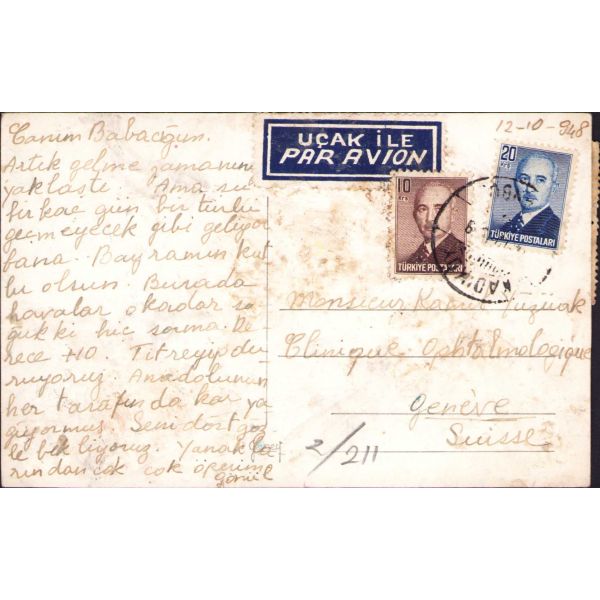 Canım Babacığım.
Artık gelme zamanın
yaklaştı. Ama şu
bir kaç gün bir türlü
geçmeyecek gibi geliyor
bana. Bayramın kut
lu olsun. Burada
havalar o kadar so
ğuk ki hiç sorma. De
rece +10. Titreyip du
ruyoruz. Anadolunun
her tarafında kar ya
ğıyormuş. Seni dört göz
le bekliyoruz. Yanakla
rından çok çok öperim.
Gönül
UÇAK İLE
PAR AVION
12-10-948
10
TÜRKİYE POSTALARI
20
TÜRKİYE POSTALARI
Monsieur
Clinique Ophtalmologique
Genève
Suisse
2/211